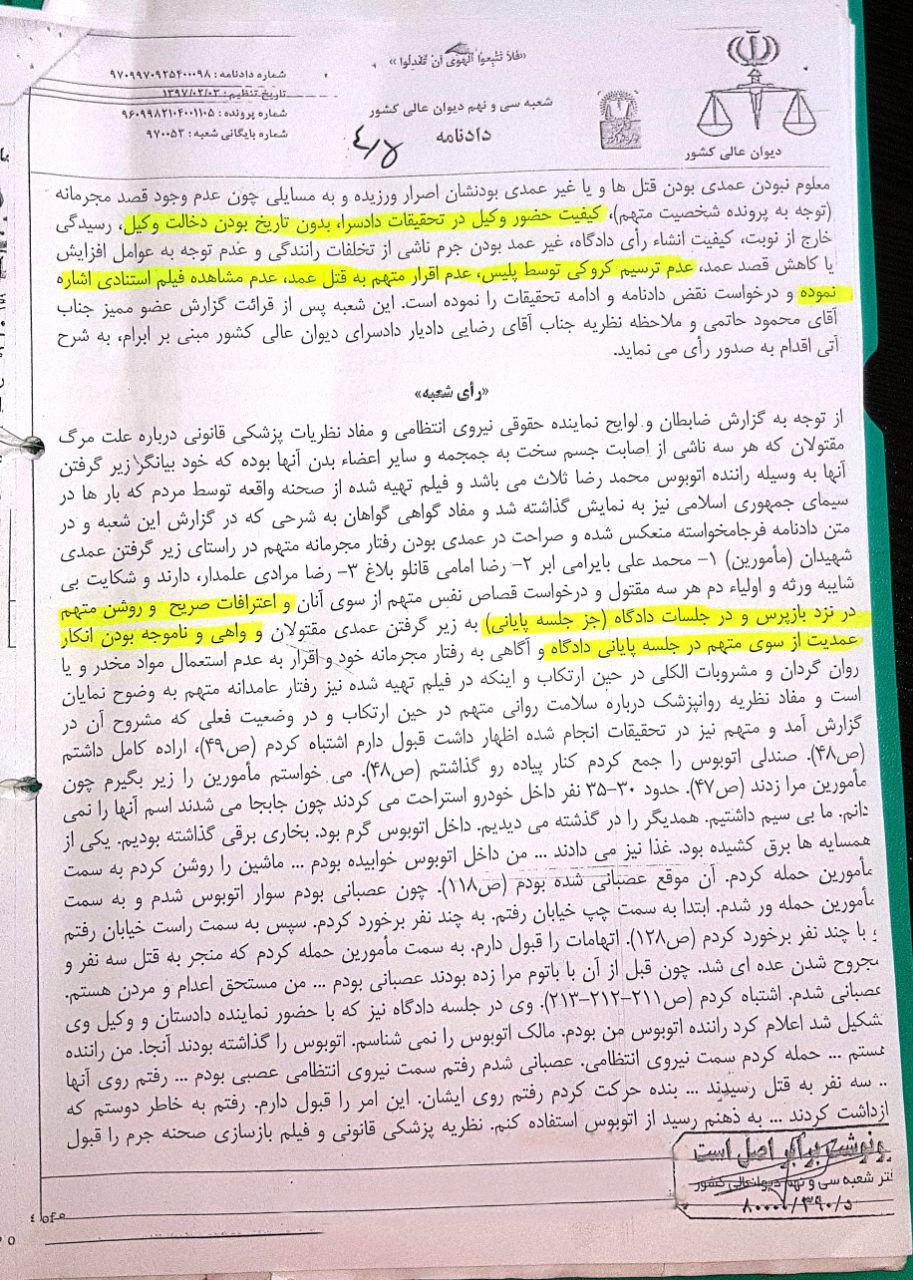 «فلا تتبعوا الهوی أن تعدلوا»
شماره دادنامه : ۹۷۰۹۹۷۰۹۲۵۴۰۰۰۹۸
تاریخ تنظیم : ۱۳۹۷/۰۲/۰۳
شماره پرونده : ۹۶۰۹۹۸۲۱۰۴۰۰۱۱۰۵
شماره بایگانی شعبه : ۹۷۰۰۵۳
شعبه سی و نهم دیوان عالی کشور
دادنامه
دیوان عالی کشور
معلوم نبودن عمدی بودن قتل ها و یا غیر عمدی بودنشان اصرار ورزیده و به مسایلی چون عدم وجود قصد مجرمانه
(توجه به پرونده شخصیت متهم)، کیفیت حضور وکیل در تحقیقات دادسرا، بدون تاریخ بودن دخالت وکیل، رسیدگی
خارج از نوبت، کیفیت انشاء رأی دادگاه، غیر عمد بودن جرم ناشی از تخلفات رانندگی و عدم توجه به عوامل افزایش
یا کاهش قصد عمد، عدم ترسیم کروکی توسط پلیس، عدم اقرار متهم به قتل عمد، عدم مشاهده فیلم استنادی اشاره
نموده و درخواست نقض دادنامه و ادامه تحقیقات را نموده است. این شعبه پس از قرائت گزارش عضو ممیز جناب
آقای محمود حاتمی و ملاحظه نظریه جناب آقای رضایی دادیار دادسرای دیوان عالی کشور مبنی بر ابرام، به شرح
آتی اقدام به صدور رأی می نماید.
«رأی شعبه»
از توجه به گزارش ضابطان و لوایح نماینده حقوقی نیروی انتظامی و مفاد نظریات پزشکی قانونی درباره علت مرگ
مقتولان که هر سه ناشی از اصابت جسم سخت به جمجمه و سایر اعضاء بدن آنها بوده که خود بیانگر زیر گرفتن
آنها به وسیله راننده اتوبوس محمد رضا ثلاث می باشد و فیلم تهیه شده از صحنه واقعه توسط مردم که بار ها در
سیمای جمهوری اسلامی نیز به نمایش گذاشته شد و مفاد گواهی گواهان به شرحی که در گزارش این شعبه و در
متن دادنامه فرجامخواسته منعکس شده و صراحت در عمدی بودن رفتار مجرمانه متهم در راستای زیر گرفتن عمدی
شهیدان (مأمورین) ۱- محمد علی بایرامی ابر ۲- رضا امامی قانلو بلاغ ۳- رضا مرادی علمدار، دارند و شکایت بی
شایبه ورثه و اولیاء دم هر سه مقتول و درخواست قصاص نفس متهم از سوی آنان و اعترافات صریح و روشن متهم
در نزد بازپرس و در جلسات دادگاه (جز جلسه پایانی) به زیر گرفتن عمدی مقتولان و واهی و ناموجه بودن انکار
عمدیت از سوی متهم در جلسه پایانی دادگاه و آگاهی به رفتار مجرمانه خود و اقرار به عدم استعمال مواد مخدر و یا
روان گردان و مشروبات الکلی در حین ارتکاب و اینکه در فیلم تهیه شده نیز رفتار عامدانه متهم به وضوح نمایان
است و مفاد نظریه روانپزشک درباره سلامت روانی متهم در حین ارتکاب و در وضعیت فعلی که مشروح آن در
گزارش آمد و متهم نیز در تحقیقات انجام شده اظهار داشت قبول دارم اشتباه کردم (ص۴۹)، اراده کامل داشتم
(ص۴۸). صندلی اتوبوس را جمع کردم کنار پیاده رو گذاشتم (ص۴۸). می خواستم مأمورین را زیر بگیرم چون
مأمورین مرا زدند (ص۴۷). حدود ۳۰-۳۵ نفر داخل خودرو استراحت می کردند چون جابجا می شدند اسم آنها را نمی
دانم. ما بی سیم داشتیم. همدیگر را در گذشته می دیدیم. داخل اتوبوس گرم بود. بخاری برقی گذاشته بودیم. یکی از
همسایه ها برق کشیده بود. غذا نیز می دادند ... من داخل اتوبوس خوابیده بودم ... ماشین را روشن کردم به سمت
مأمورین حمله کردم. آن موقع عصبانی شده بودم (ص۱۱۸). چون عصبانی بودم سوار اتوبوس شدم و به سمت
مأمورین حمله ور شدم. ابتدا به سمت چپ خیابان رفتم. به چند نفر برخورد کردم. سپس به سمت راست خیابان رفتم
و با چند نفر برخورد کردم (ص۱۲۸). اتهامات را قبول دارم. به سمت مأمورین حمله کردم که منجر به قتل سه نفر و
مجروح شدن عده ای شد. چون قبل از آن با باتوم مرا زده بودند عصبانی بودم ... من مستحق اعدام و مردن هستم.
عصبانی شدم. اشتباه کردم (ص۲۱۱-۲۱۲-۲۱۳). وی در جلسه دادگاه نیز که با حضور نماینده دادستان و وکیل وی
تشکیل شد اعلام کرد راننده اتوبوس من بودم. مالک اتوبوس را نمی شناسم. اتوبوس را گذاشته بودند آنجا. من راننده
هستم ... حمله کردم سمت نیروی انتظامی. عصبانی شدم رفتم سمت نیروی انتظامی عصبی بودم ... رفتم روی آنها
.. سه نفر به قتل رسیدند ... بنده حرکت کردم رفتم روی ایشان. این امر را قبول دارم. رفتم به خاطر دوستم که
ازداشت کردند ... به ذهنم رسید از اتوبوس استفاده کنم. نظریه پزشکی قانونی و فیلم بازسازی صحنه جرم را قبول
رونوشت برابر اصل است
فتر شعبه سی و نهم دیوانعالی کشور
۸۰۰۰۰/۳۹۰/۵
٤ of ٥